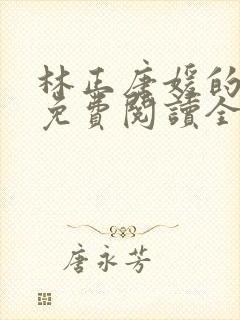 林正唐媛的
免費閱讀全
唐永芳